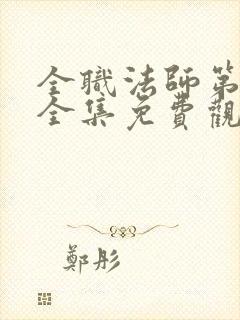 全職法師第
全集免費觀
鄭彤